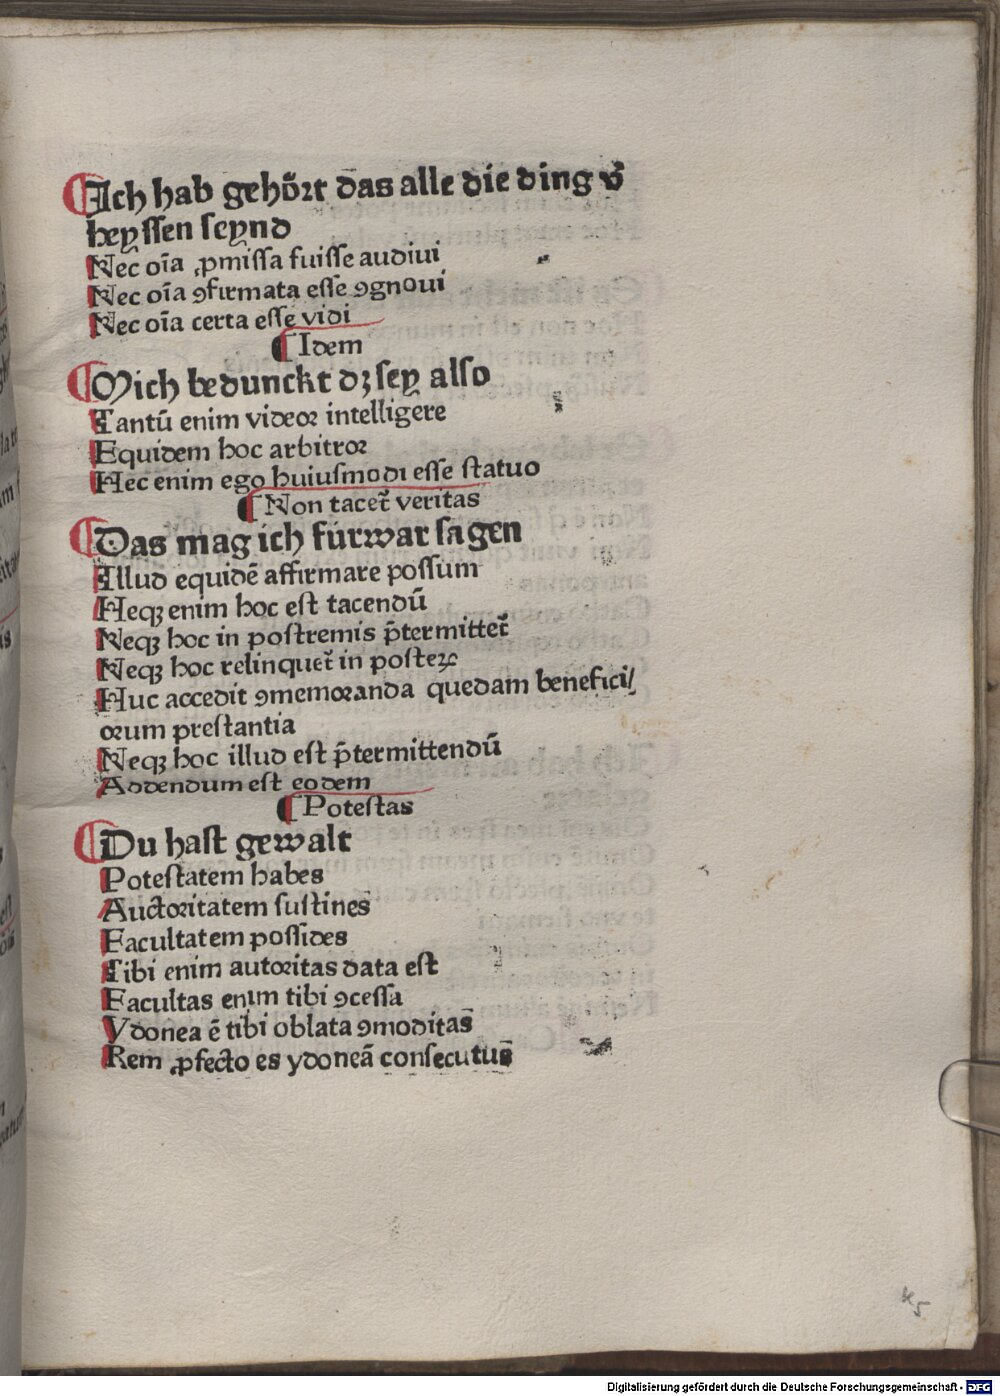 ¶Ich hab gehört das alle die ding v̄
heyssen seynd
Nec oīa ꝓmissa fuisse audiui
Nec oīa ꝯfirmata esse ꝯgnoui
Nec oīa certa esse vidi
¶Idem
¶Mich bedunckt dꝫ sey also
Tantū enim videor intelligere
Equidem hoc arbitror
Hec enim ego huiusmodi esse statuo
¶Non tacet᷑ veritas
¶Das mag ich fürwar sagen
Illud equidē affirmare possum
Neqꝫ enim hoc est tacendū
Neqꝫ hoc in postremis p̄termittet᷑
Neqꝫ hoc relinquet᷑ in posteꝝ
Huc accedit ꝯmemoranda quedam benefici/
orum prestantia
Neqꝫ hoc illud est p̄termittendū
Addendum est eodem
¶Potestas
¶Du hast gewalt
Potestatem habes
Auctoritatem sustines
Facultatem possides
Tibi enim autoritas data est
Facultas enim tibi ꝯcessa
Ydonea ē tibi oblata ꝯmoditas
Rem ꝓfecto es ydoneā consecutus
k5
Digitalisierung gefördert durch die Deutsche Forschungsgemeinschaft - DFG